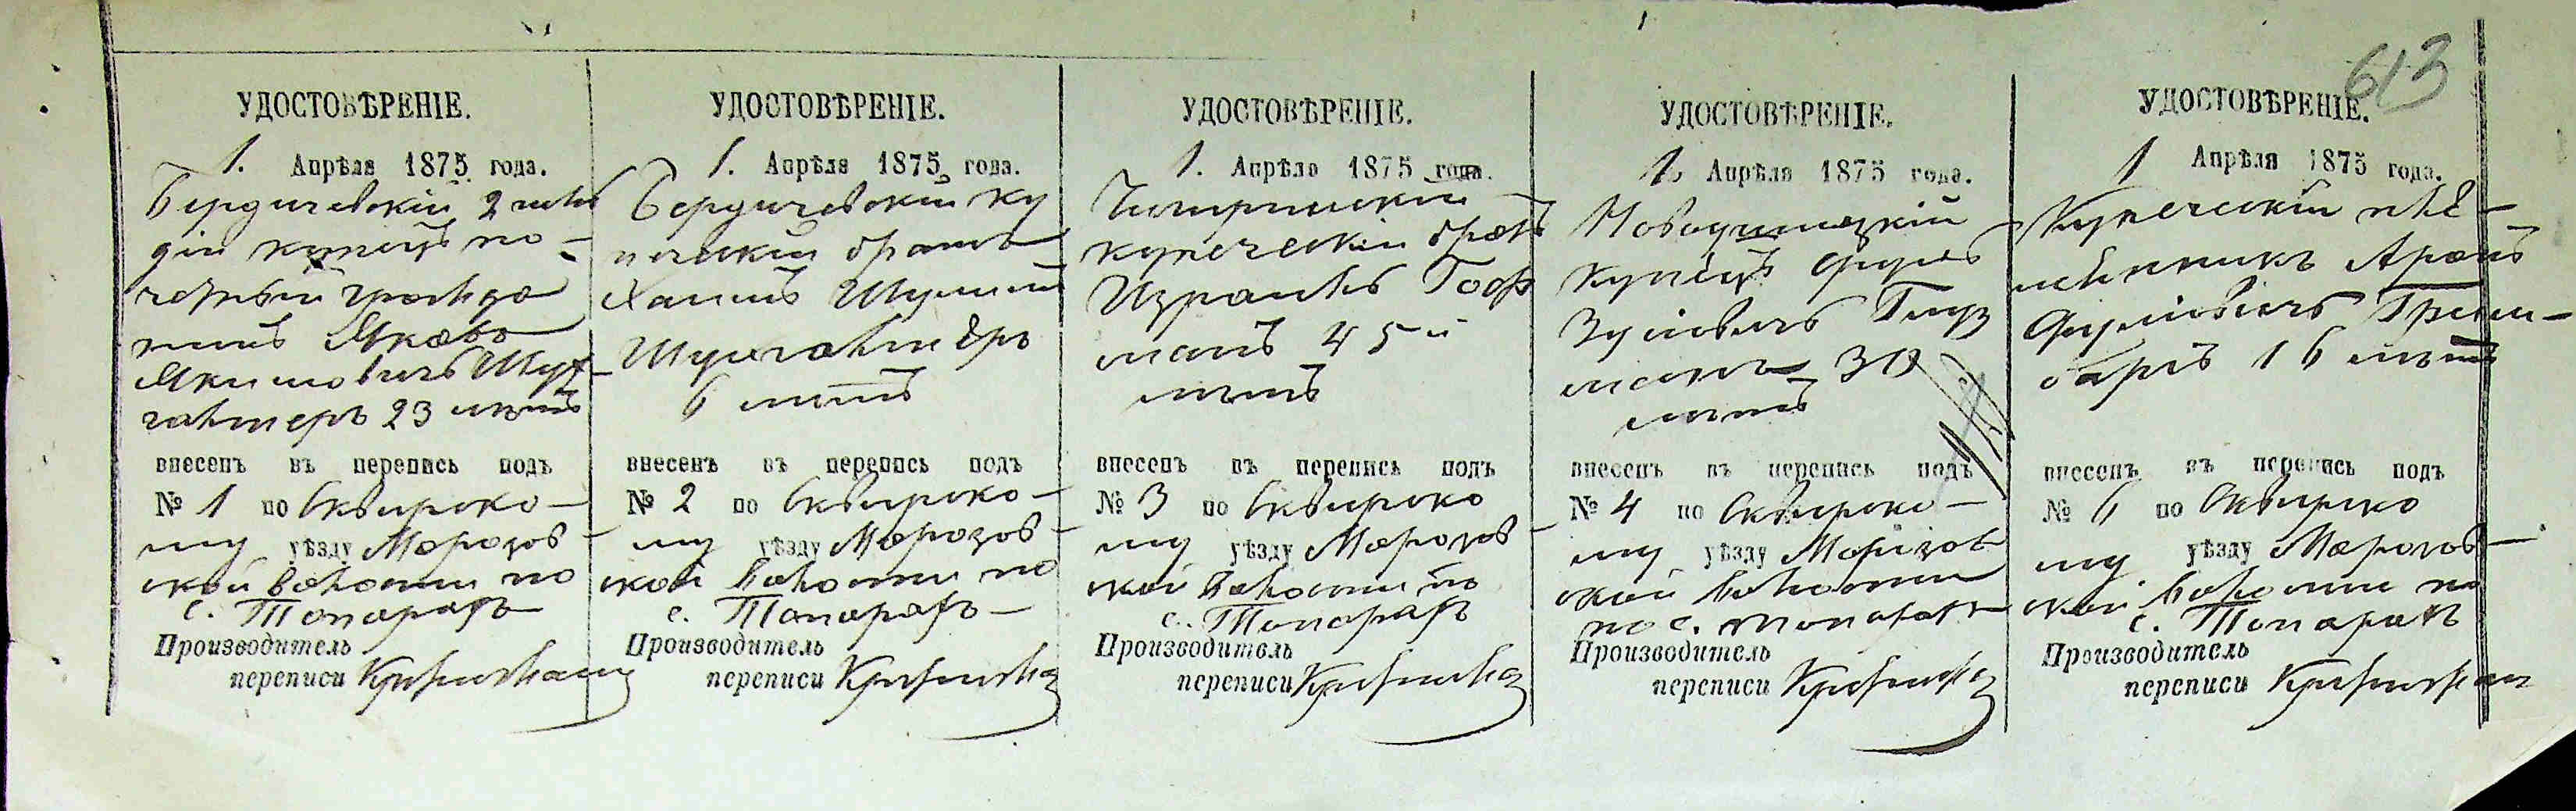 613
УДОСТОВѢРЕНІЕ.
1. Апрѣля 1875 года.
Бердичевскій 2 гиль
діи купецъ по-
четный гражда
нинъ Яковъ
Якимовичъ Шул-
гальтеръ 23 лѣтъ
внесенъ въ перепись подъ
№ 1 по Сквирско-
му уѣзду Морозов-
ской волости по
с. Топорахъ
Производитель
переписи
УДОСТОВѢРЕНІЕ.
1. Апрѣля 1875 года.
Бердичевскій ку
печескій братъ
Хаимъ
6 лѣтъ
внесенъ въ перепись подъ
№ 2 по Сквирско-
му уѣзду Морозов-
ской волости по
с. Топорахъ
Производитель
переписи
УДОСТОВѢРЕНІЕ.
1. Апрѣля 1875 года.
купеческій братъ
Израиль Гоф
манъ 45
лѣтъ
внесенъ въ перепись подъ
№ 3 по Сквирско
му уѣзду Морозов-
ской волости по
с. Топорахъ
Производитель
переписи
УДОСТОВѢРЕНІЕ.
1. Апрѣля 1875 года.
купецъ
лѣтъ
внесенъ въ перепись подъ
№ 4 по Сквирско-
му уѣзду Морозов
ской волости
по с. Топорахъ
Производитель
переписи
УДОСТОВѢРЕНІЕ.
1 Апрѣля 1875 года.
Купеческій пле-
мянникъ Аронъ
16 лѣтъ
внесенъ въ перепись подъ
№ 6 по Сквирско
му уѣзду Морозов-
ской волости по
с. Топорахъ
Производитель
переписи